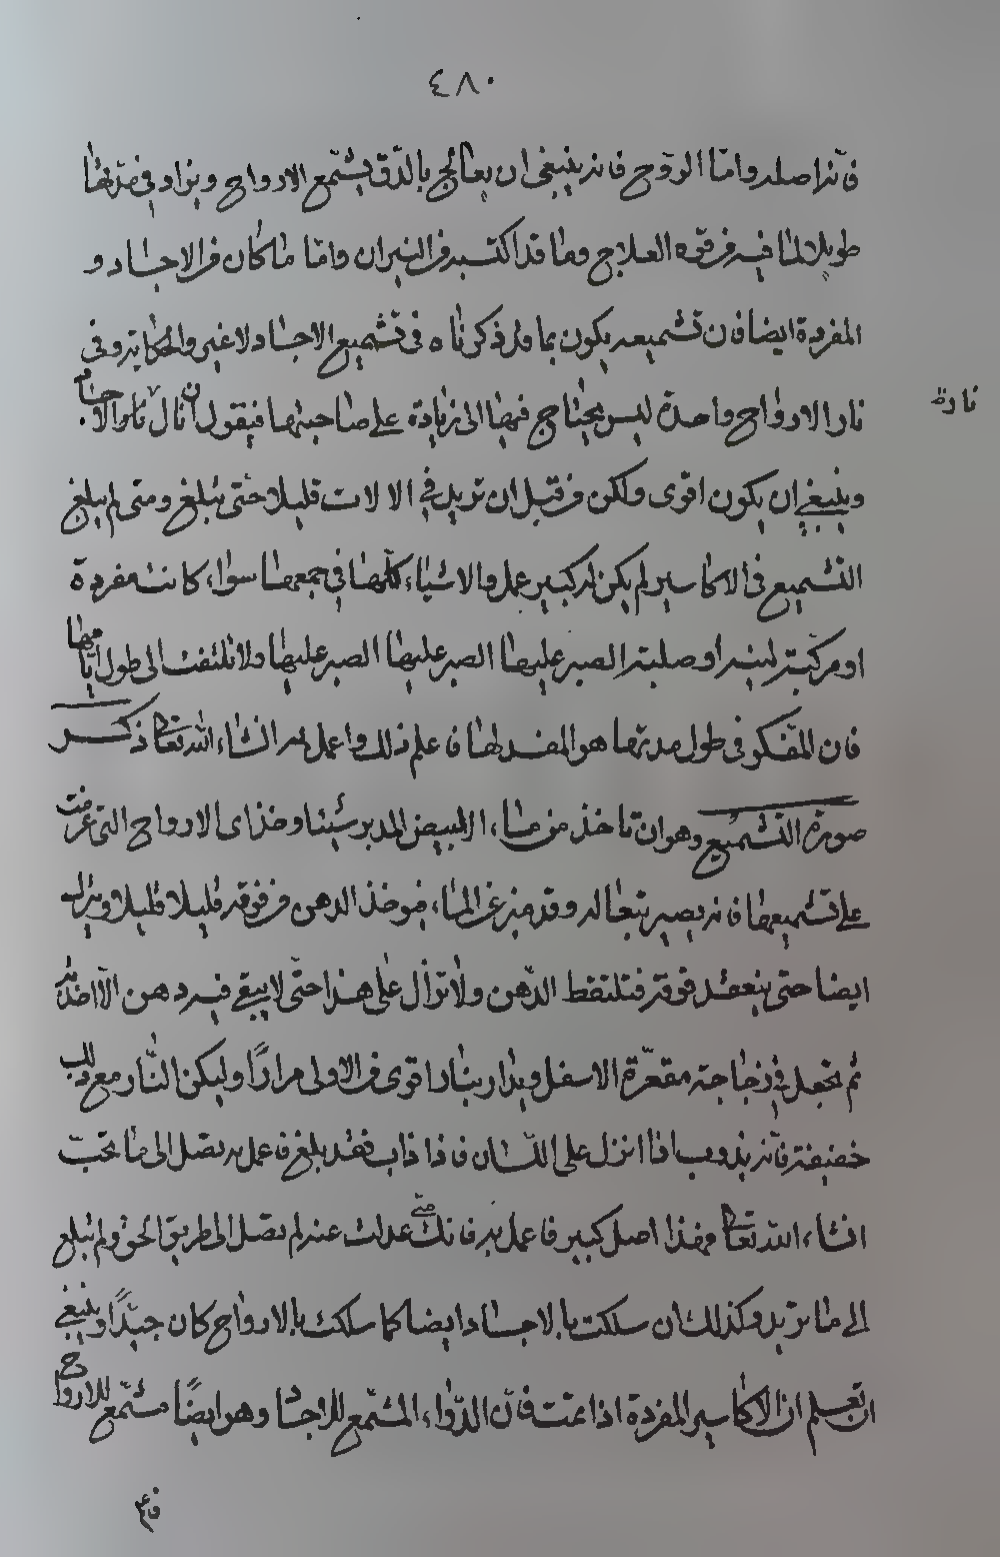 ٤٨٠
فانه اصله واما الروح فانه ينبغي ان يعالج بالدق بتشمع الارواح ويزاد في مدتها
طويلا لما فيه من قوة العلاج وما قد اكتسبه من النيران واما ما كان من الاجساد و
المفردة ايضا فان تشميعه يكون بما قد ذكرناه في تشميع الاجساد لا غير والحكاية وفى
نار الارواح واحدة ليس يحتاج فيها الى زيادة على صاحبتها فيقول ان نال نار الاجسام
نارد
وينبغي ان يكون اقوى ولكن من قبل ان تزيد في الالات قليلا حتى تبلغ ومتى لم يبلغ
التشميع في الاكاسير لم يكن له كبير عمل والاشياء كلها في جمعها سواء كانت مفردة
او مركبة لينة او صلبة الصبر عليها الصبر عليها الصبر عليها ولا تلتفت الى طول ايامها
فان المفكر في طول مدتها هو المفسد لها فاعلم ذلك واعمل به انشاء الله تعالى ذكر
صورة التشميع وهو ان تاخذ من ماء البيض المدبر شيئا وخذ اى الارواح التى عزمت
على تشميعها فانه يصير بتعاله وقد ميز عن الماء فيوخذ الدهن من فوقه قليلا قليلا ويترك
ايضا حتى ينعقد فوقه فتلتقط الدهن ولا تزال على هذا حتى لا يبقى فيه دهن الا اخذته
ثم تجعل في زجاجة مقعرة الاسفل ويدار بنار اقوى من الاولى مرارًا وليكن النار مع ذلك
خفيفة فانه يذوب اذا انزل على اللسان فاذا ذاب فقد بلغ فاعمل به تصل الى ما تحب
انشاء الله تعالى فهذا اصل كبير فاعمل به فانك متى عدلت عنه لم تصل الى طريق الحق ولم تبلغ
الى ما تريد وكذلك ان سلكت بالاجساد ايضا كما سلكت بالارواح كان جيدًا وينبغي
ان تعلم ان الاكاسير المفردة اذا عمت فان الدواء المشمع للاجساد وهو ايضًا مشمع للارواح